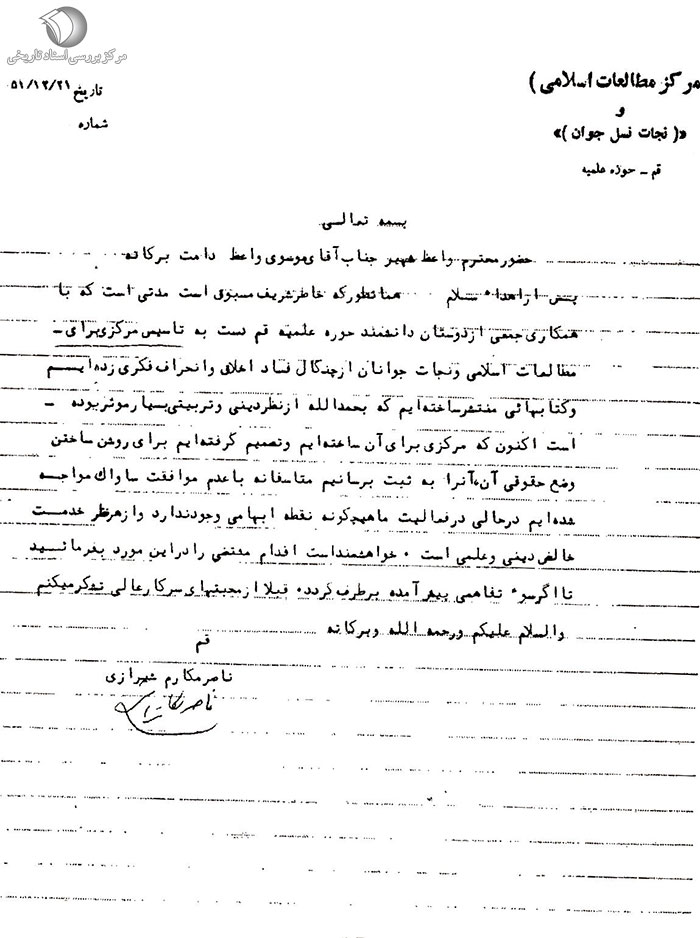 مرکز بررسی اسناد تاریخی
مرکز مطالعات اسلامی )
و
«( نجات نسل جوان )»
قم - حوزه علمیه
تاریخ ۵۱/۱۲/۲۱
شماره
بسمه تعالی
حضور محترم واعظ شهیر جناب آقای موسوی واعظ دامت برکاته
پس از اهداء سلام همانطور که خاطر شریف مسبوق است مدتی است که با
همکاری جمعی از دوستان دانشمند حوزه علمیه قم دست به تاسیس مرکزی برای -
مطالعات اسلامی و نجات جوانان از چنگال فساد اخلاق و انحراف فکری زده ایم
و کتابهائی منتشر ساخته ایم که بحمد الله از نظر دینی و تربیتی بسیار موثر بوده -
است اکنون که مرکزی برای آن ساخته ایم و تصمیم گرفته ایم برای روشن ساختن
وضع حقوقی آن، آنرا به ثبت برسانیم متاسفانه با عدم موافقت ساواک مواجه
شده ایم در حالی در فعالیت ما هیچگونه نقطه ابهامی وجود ندارد و از هر نظر خدمت
خالص دینی و علمی است . خواهشمند است اقدام مقتضی را در این مورد بفرمائید
تا اگر سوء تفاهمی پیش آمده برطرف گردد. قبلا از محبتهای سرکار عالی تشکر میکنم
والسلام علیکم ورحمه الله وبرکاته
قم
ناصر مکارم شیرازی
ناصر مکارم